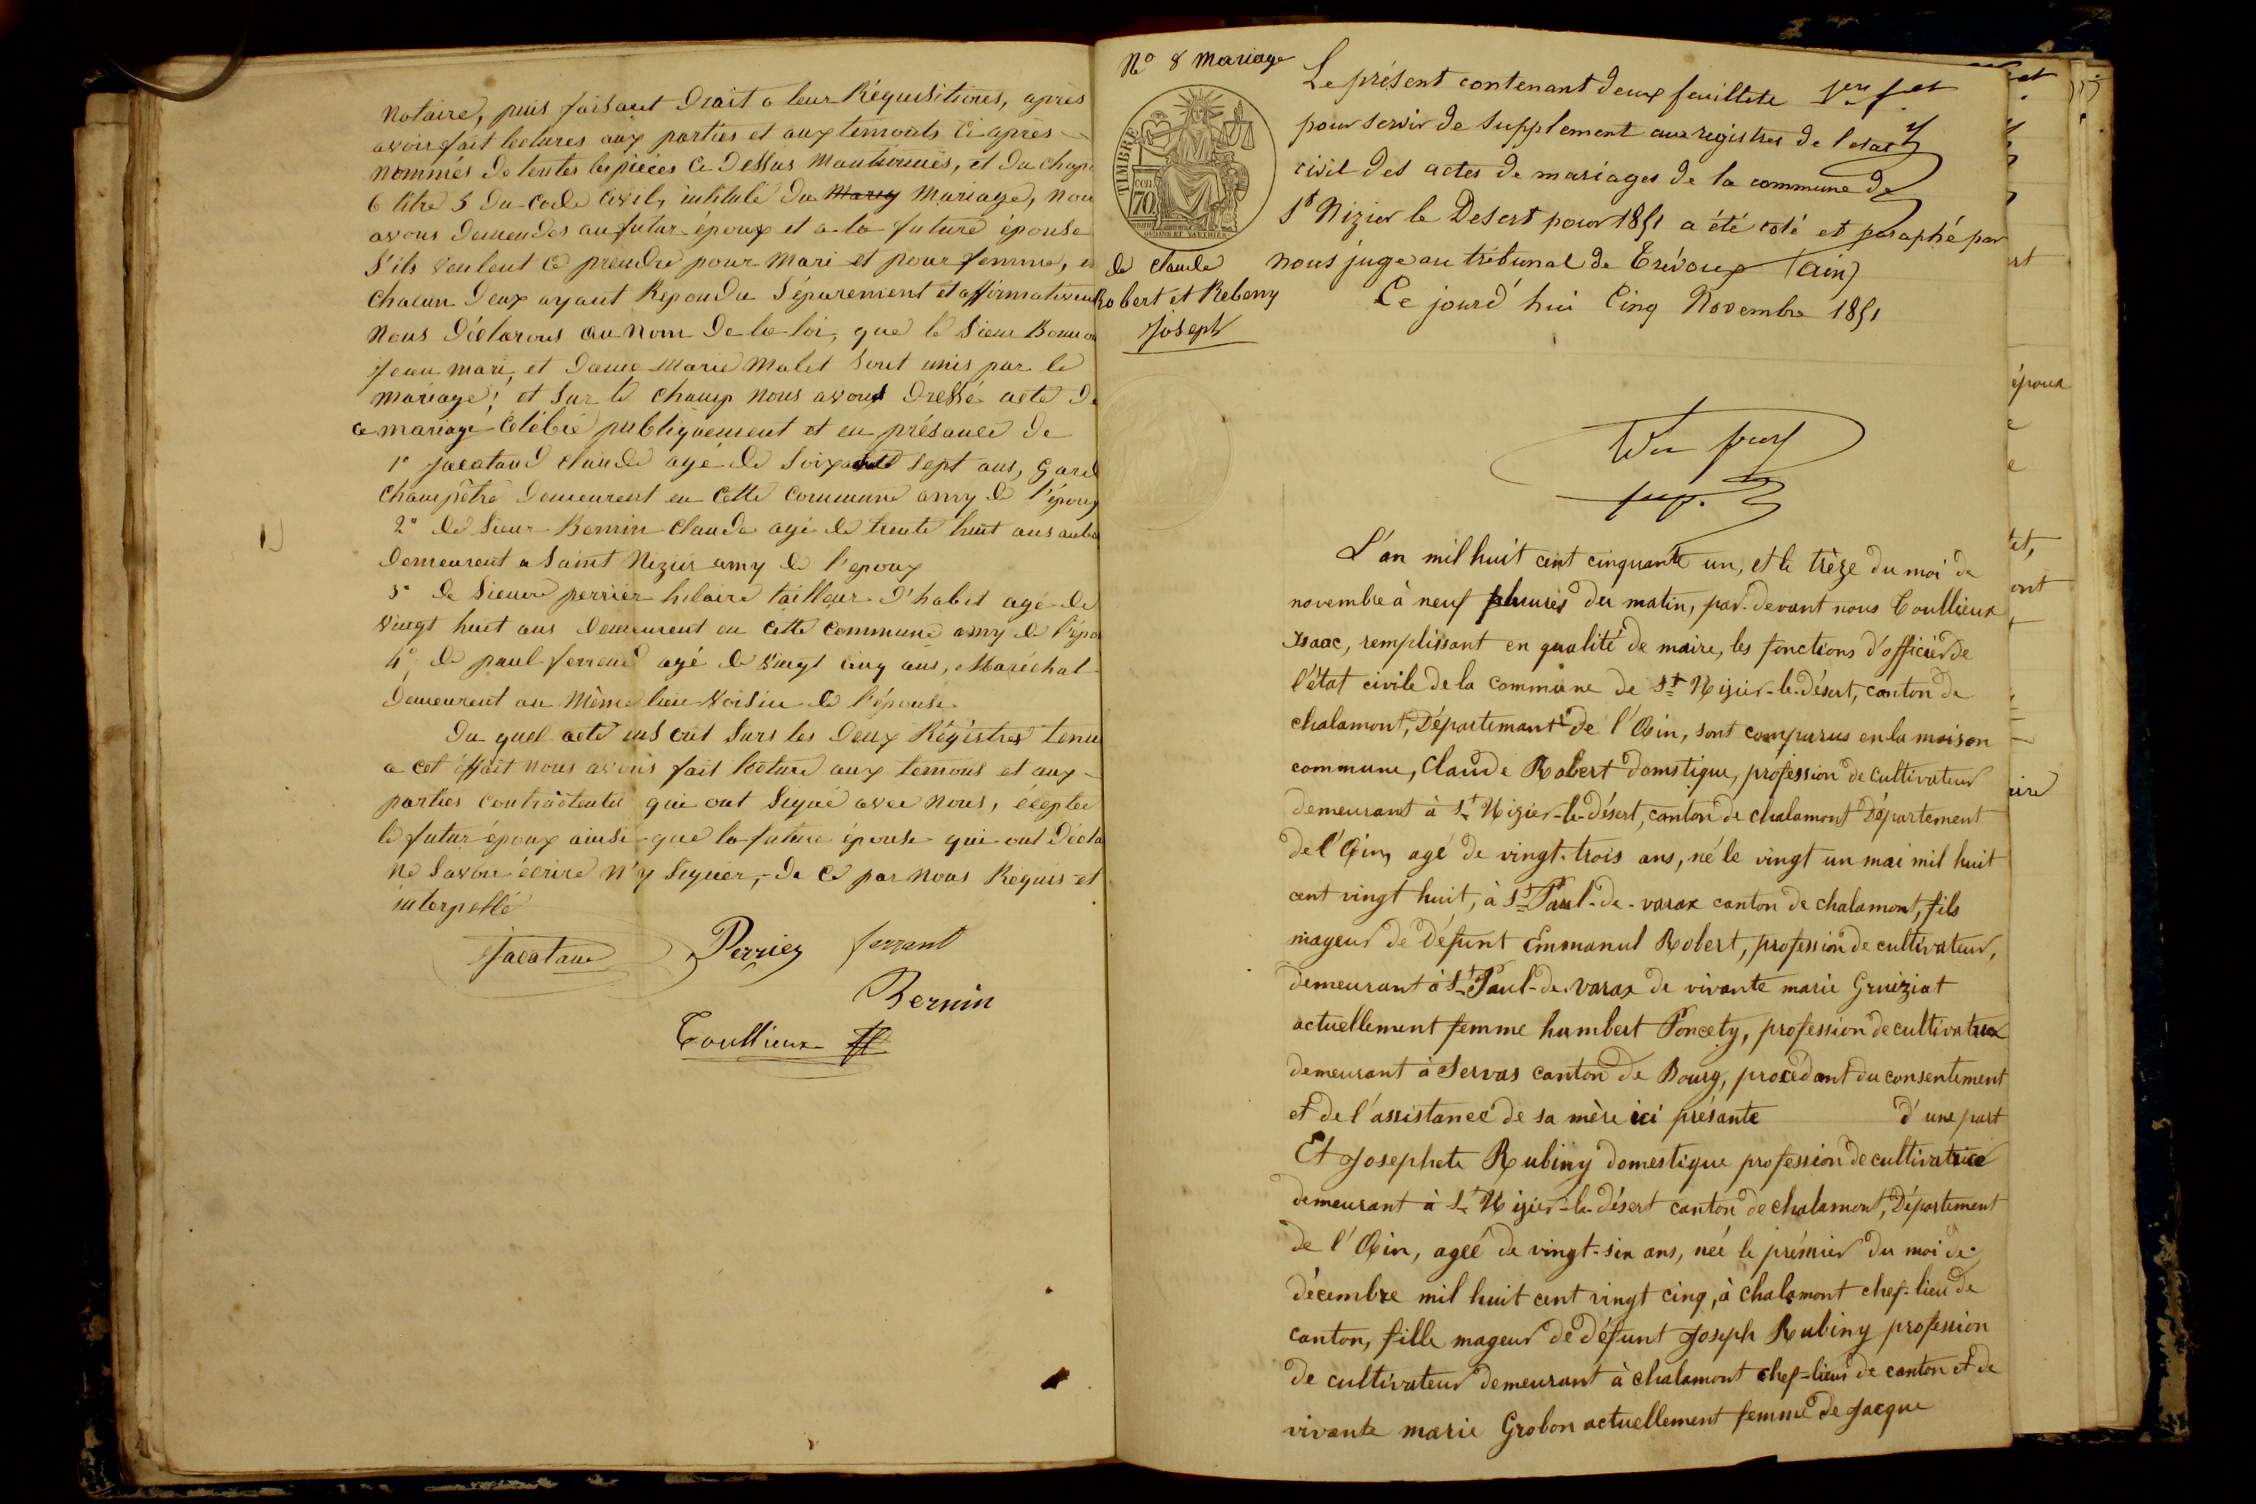 notaire, puis faisant Droit a leur Réquisitions, après
avoir fait lectures aux parties et aux temouts Ci-après
nommés de toutes les pièces Ce Dessus Mantionnés, et du chap
6 titre 5 du Code Civil, intitulé du Mariage, nou
avons Demendes au futur époux et a la future épouse
S'ils veulent Ce prendre pour Mari et pour femme, e
Chacun Deux ayant Repondu Séparement et affirmativem
Nous Déclarons au Nom De la loi, que le Sieur
Jean mari, et Dame Marie Malet Sont unis par le
mariage; et Sur le champ Nous avons Dressé acte De
Ce mariage Célébré publiquement et en présance De
1° Jacataud Claude agé de Soixante Sept ans, Gard
Champêtre Demeurent en Cette Commune amy de l'époux
2° de Sieur Bernin Claude agé de trente huit ans
Demeurent a Saint Nizier amy de l'epoux
3° de Sieure perrier hilaire tailleur D'habit agé de
Vingt huit ans Demeurent en Cette Commune amy de l'épo
4° de paul ferrend agé de Vingt Cinq ans, Maréchal
Demeurent au Même lieu Voisin de l'épouse
Du quel acte inscrit Surs les Deux Régistres tenu
a cet éffait nous avons fait lecture aux temous et aux
parties Contractentes qui ont Signé avec Nous, éxeptée
le futur époux ainsi que la future épouse qui ont Décla
ne Savoir écrire N'y Signer, De Ce par Nous Requis et
interpellé
Jacataud Perrier ferrant
Bernin
Toullieux
N° 8 Mariage
de claude
Robert et Rebeny
Joseph
TIMBRE
70
Le présent contenant deux feuillets 1er f.et
pour servir de supplement aux registres de l'etat
civil des actes de mariages de la commune de
St Nizier le Desert pour 1851 a été coté et paraphé par
nous juge au tribunal de Trévoux (ain)
Ce jourd'hui Cinq Novembre 1851
L'an mil huit cent cinquante un, et le trèze du moi de
novembre à neuf heures du matin, par-devant nous Toullieux
Isaac, remplissant en qualité de maire, les fonctions d'officier de
l'état civile de la commune de St Nizier-le-désert, canton de
chalamont, Département de l'Ain, sont comparus en la maison
commune, Claude Robert domstique, profession de cultivateur
demeurant à St Nizier-le-désert, canton de chalamont Département
de l'Ain, agé de vingt-trois ans, né le vingt un mai mil huit
cent vingt huit, à St Paul-de-varax canton de chalamont, fils
mageur de Défunt Emmanul Robert, profession de cultivateur,
demeurant à St Paul-de-varax de vivante marie Gruiziat
actuellement femme humbert Poncety, profession de cultivatrice
demeurant à Servas canton de Bourg, procedant du consentement
et de l'assistance de sa mère ici présante d'une part
Et Josephete Rubiny domestique profession de cultivatrice
demeurant à St Nizier-le-désert canton de chalamont, Département
de l'Ain, ageé de vingt-six ans, neé le prémier du moi de
décembre mil huit cent vingt cinq, à chalamont chef-lieu de
canton, fille mageur de Défunt Joseph Rubiny profession
de cultivateur demeurant à chalamont chef-lieu de canton et de
vivante marie Grobon actuellement femme de Jacque